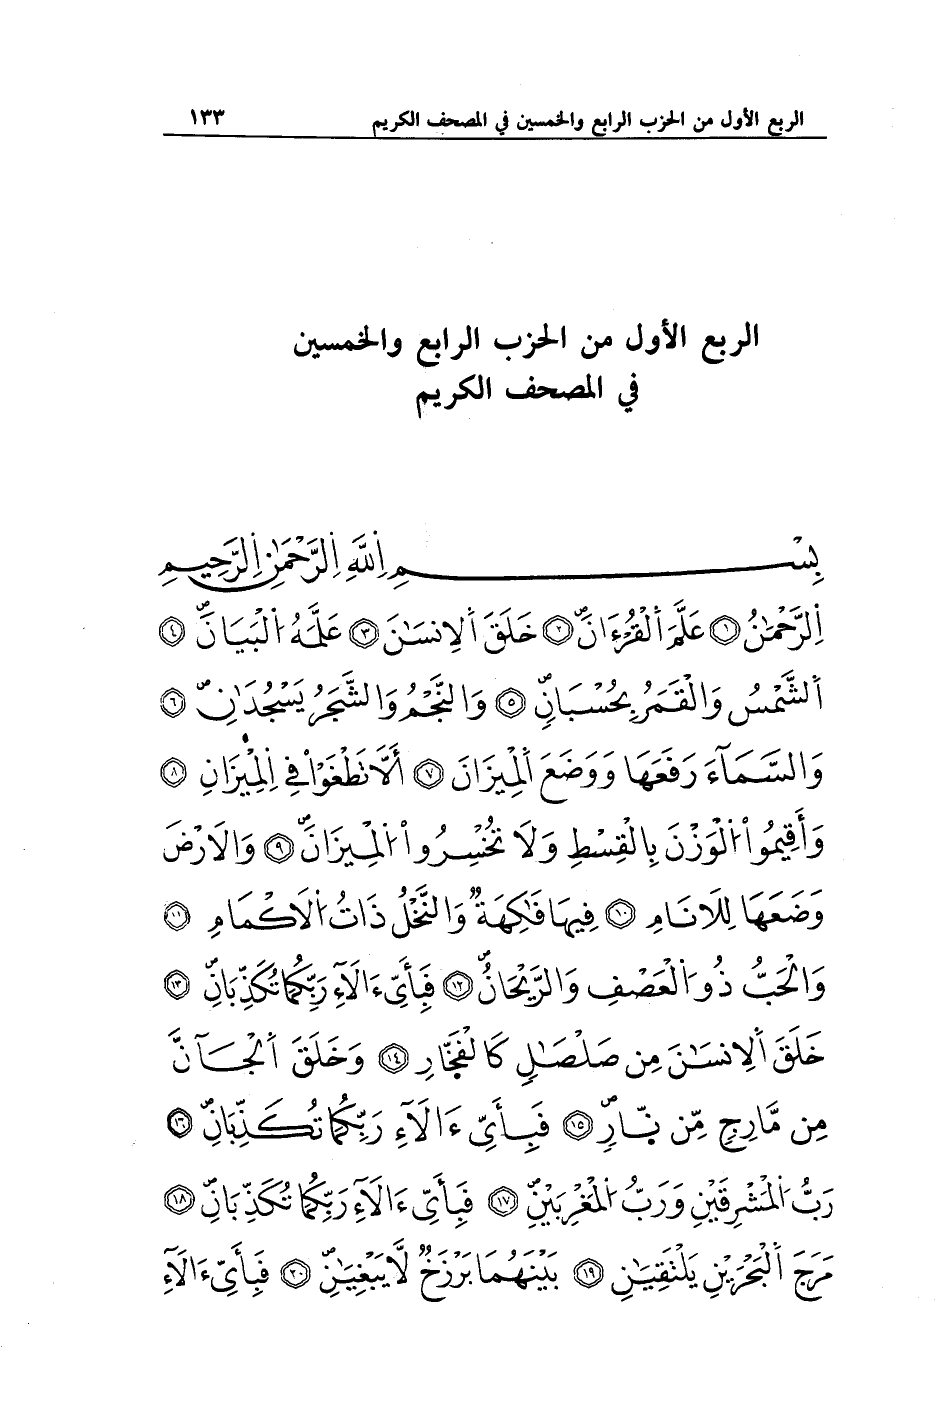 الربع الأول من الحزب الرابع والخمسين في المصحف الكريم ١٣٣
الربع الأول من الحزب الرابع والخمسين
في المصحف الكريم
بِسْمِ اِللَّهِ اِلرَّحْمَٰنِ اِلرَّحِيمِ
اِلرَّحْمَٰنُ ١ عَلَّمَ اَلْقُرْءَانَ ٢ خَلَقَ اَلِانسَٰنَ ٣ عَلَّمَهُ اُلْبَيَانَ ٤
اَلشَّمْسُ وَالْقَمَرُ بِحُسْبَانٍ ٥ وَالنَّجْمُ وَالشَّجَرُ يَسْجُدَٰنِ ٦
وَالسَّمَآءَ رَفَعَهَا وَوَضَعَ اَلْمِيزَانَ ٧ أَلَّا تَطْغَوْاْ فِي اِلْمِيزَانِ ٨
وَأَقِيمُواْ اُلْوَزْنَ بِالْقِسْطِ وَلَا تُخْسِرُواْ اُلْمِيزَانَ ٩ وَالَارْضَ
وَضَعَهَا لِلَانَامِ ١٠ فِيهَا فَٰكِهَةٌ وَالنَّخْلُ ذَاتُ اُلَاكْمَامِ ١١
وَالْحَبُّ ذُو اُلْعَصْفِ وَالرَّيْحَانُ ١٢ فَبِأَىِّ ءَالَآءِ رَبِّكُمَا تُكَذِّبَانِ ١٣
خَلَقَ اَلِانسَٰنَ مِن صَلْصَٰلٍ كَالْفَخَّارِ ١٤ وَخَلَقَ اَلْجَآنَّ
مِن مَّارِجٍ مِّن نَّارٍ ١٥ فَبِأَىِّ ءَالَآءِ رَبِّكُمَا تُكَذِّبَانِ ١٦
رَبُّ اُلْمَشْرِقَيْنِ وَرَبُّ اُلْمَغْرِبَيْنِ ١٧ فَبِأَىِّ ءَالَآءِ رَبِّكُمَا تُكَذِّبَانِ ١٨
مَرَجَ اَلْبَحْرَيْنِ يَلْتَقِيَٰنِ ١٩ بَيْنَهُمَا بَرْزَخٌ لَّا يَبْغِيَٰنِ ٢٠ فَبِأَىِّ ءَالَآءِ